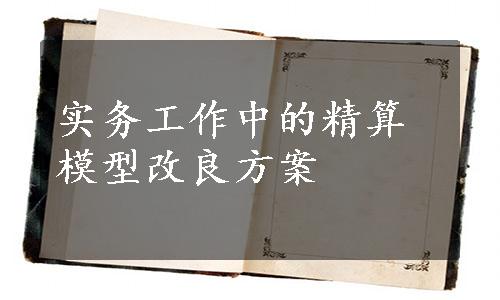 实务工作中的精算
模型改良方案